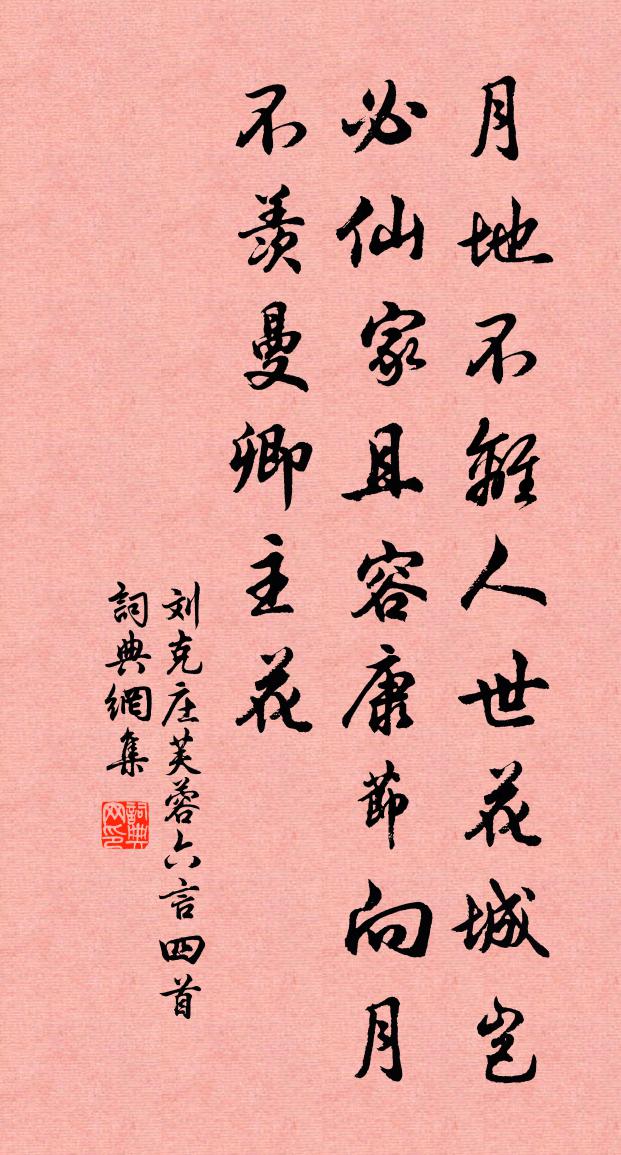 月地不離人世花城豈
必仙家且容康節向月
不羨曼卿主花
刘克庄芙蓉六言四首
詞典網集
詞典网印